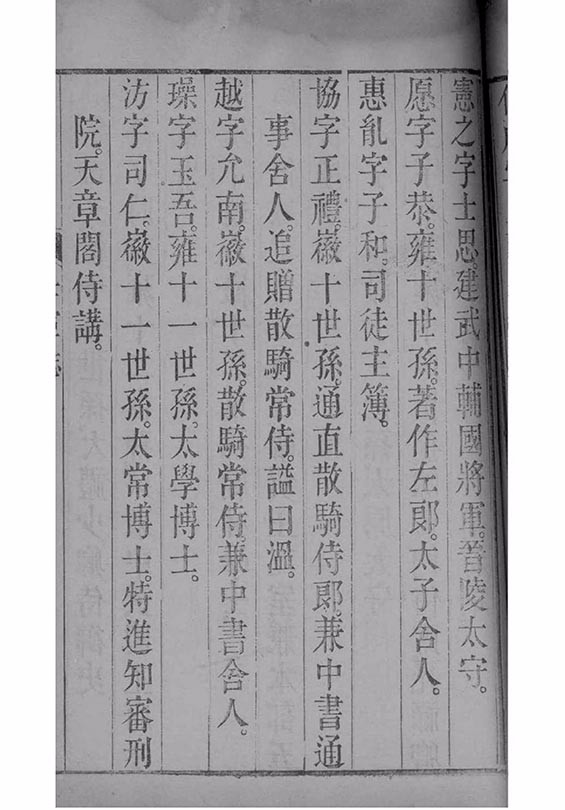 憲之字士思建武中輔國將軍。晉陵太守。
愿字子恭。雍十世孫。著作左郎。太子舍人。
惠胤字子和。司徒主簿。
協字正禮。徽十世孫。通直散騎侍郎。兼中書通
事舍人。追贈散騎常侍。謚曰溫。
越字允南。徽十世孫。散騎常侍兼中書舍人。
璪字玉吾。雍十一世孫。太學博士。
汸字司仁。徽十一世孫。太常博士。特進知審刑
院。天章閣侍講。